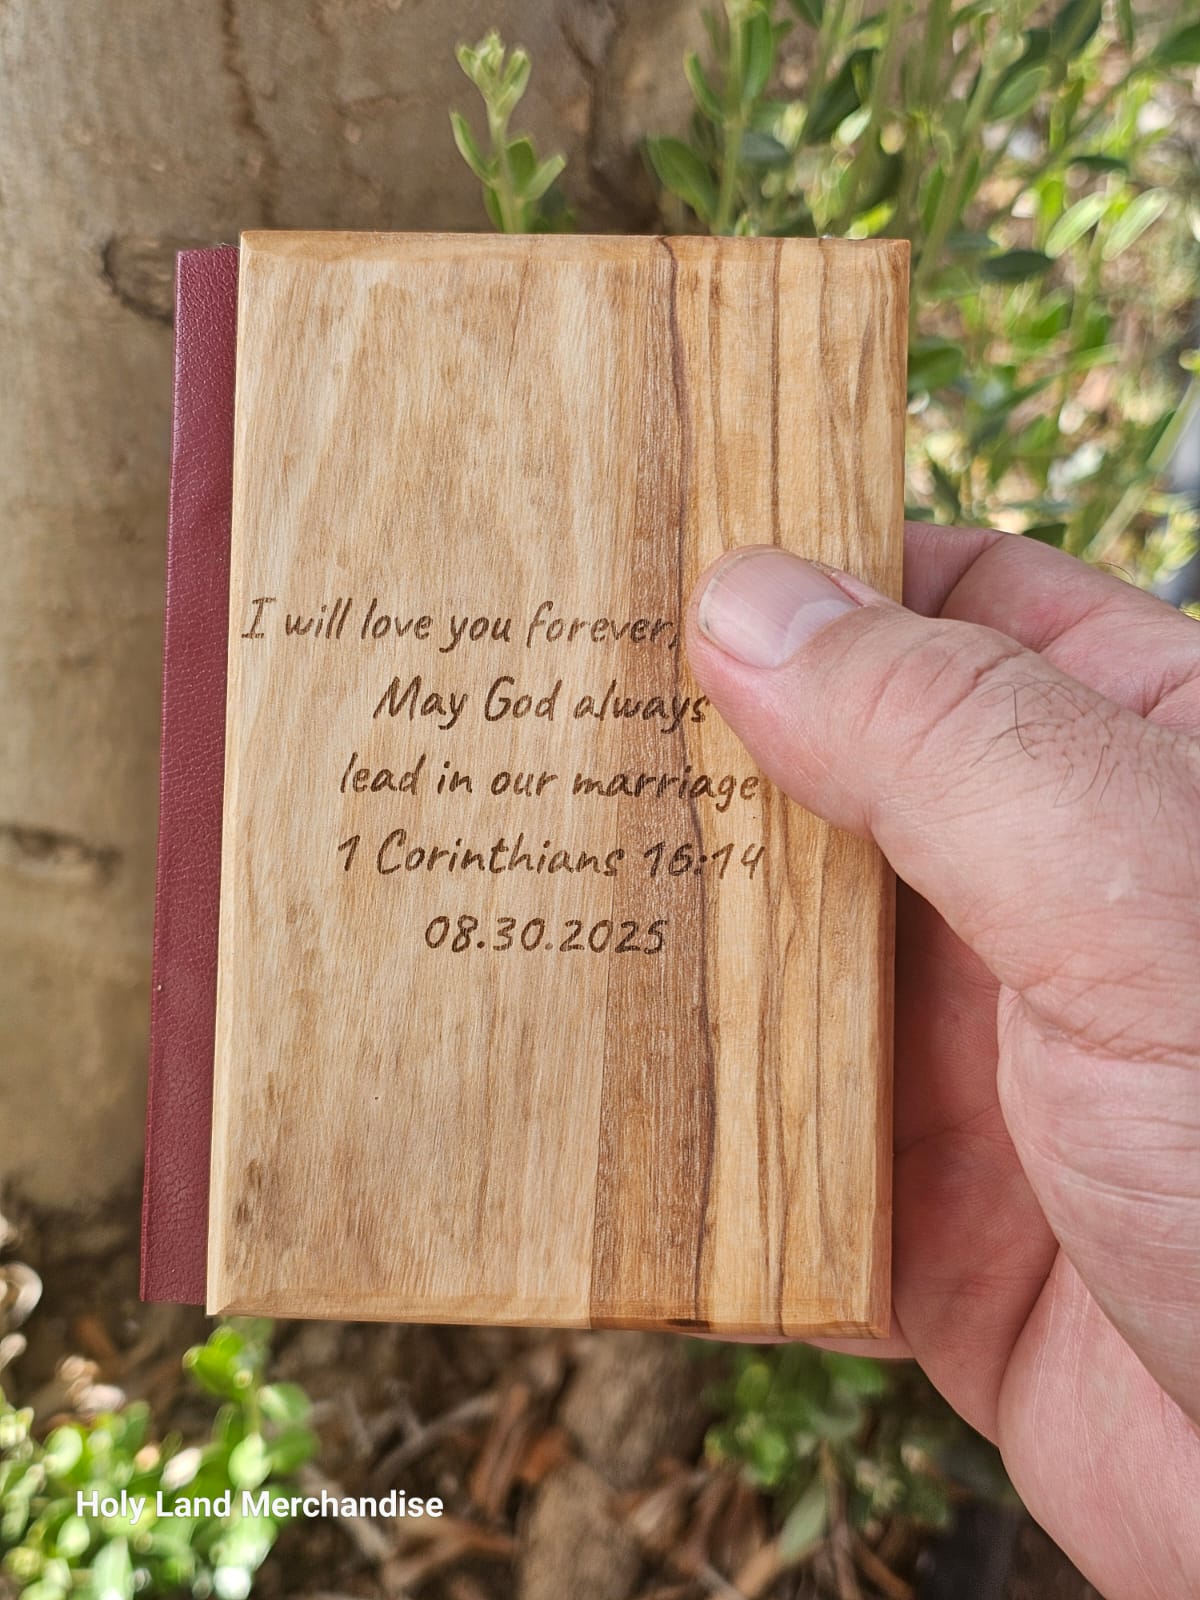 I will love you forever,
May God always
lead in our marriage
1 Corinthians 16:14
08.30.2025
Holy Land Merchandise